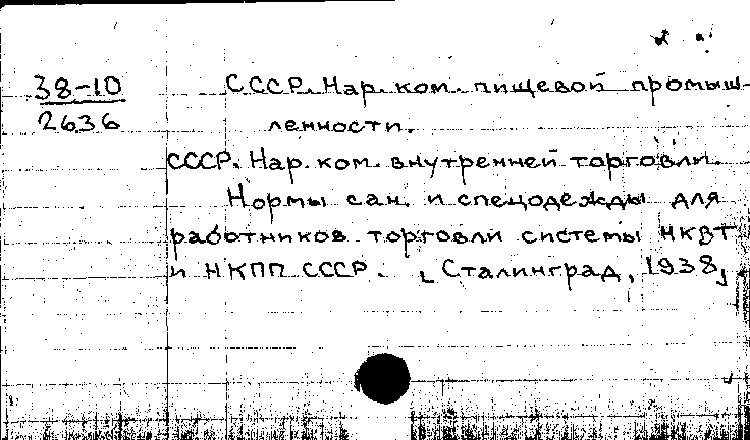 38-10
2636
СССР. Нар. ком. пищевой промыш-
ленности.
СССР. Нар. ком. внутренней торговли.
Нормы сан. и спецодежды для
работников торговли системы НКВТ
и НКПП СССР. [Сталинград, 1938]